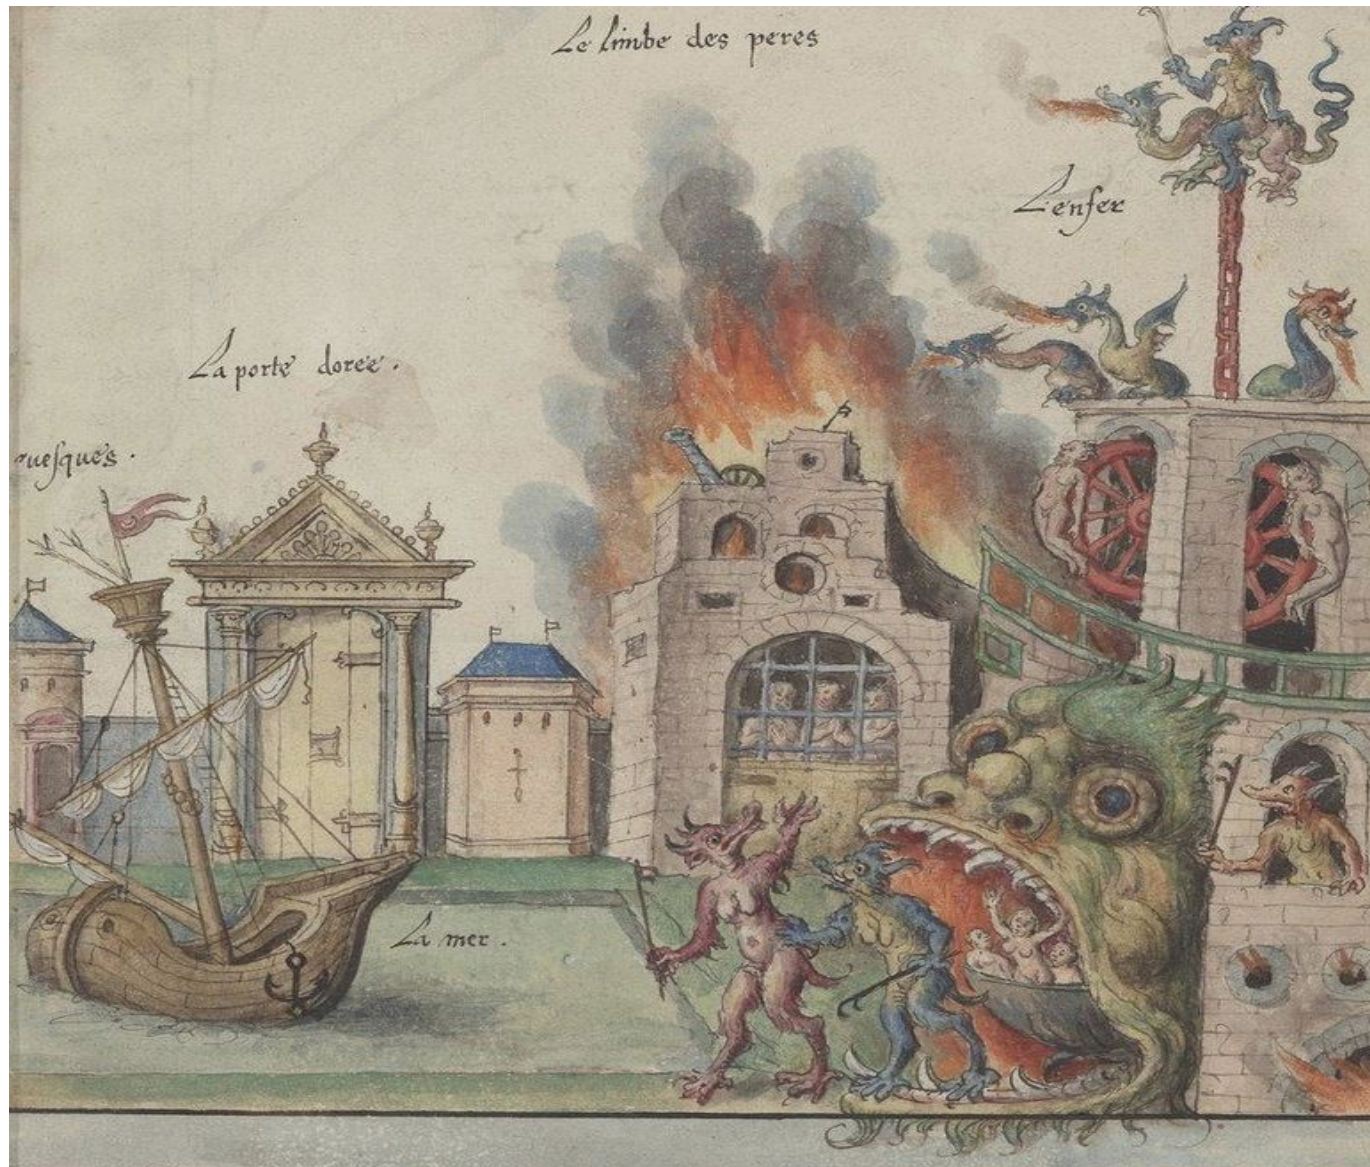 Le limbe des peres
L'enfer
La porte doree.
uesques.
La mer.